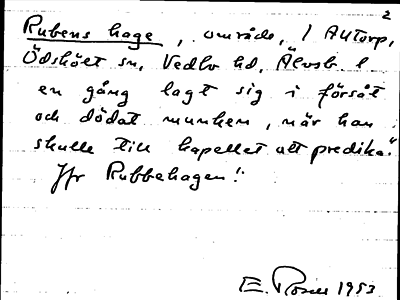 2
Rubens hage, område, / Altorp,
Ödskölt sn, Vedbo hd, Älvsb. l
en gång lagt sig i försåt
och dödat munken, när han
skulle till kapellet att predika."
Jfr Rubbehagen!
E. Rosell 1953